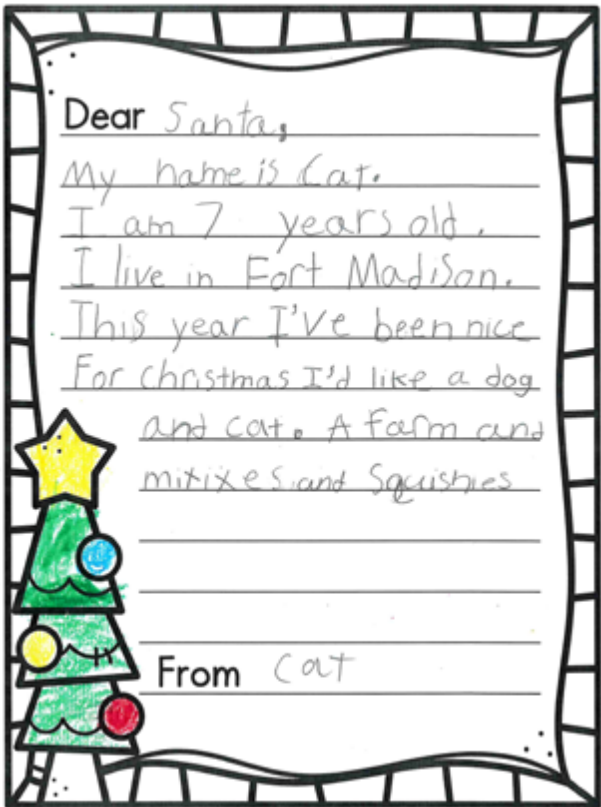 Dear Santa,
My name is Cat.
I am 7 years old.
I live in Fort Madison.
This year I've been nice
For christmas I'd like a dog
and cat. A farm and
mitixes and Squishies
From Cat